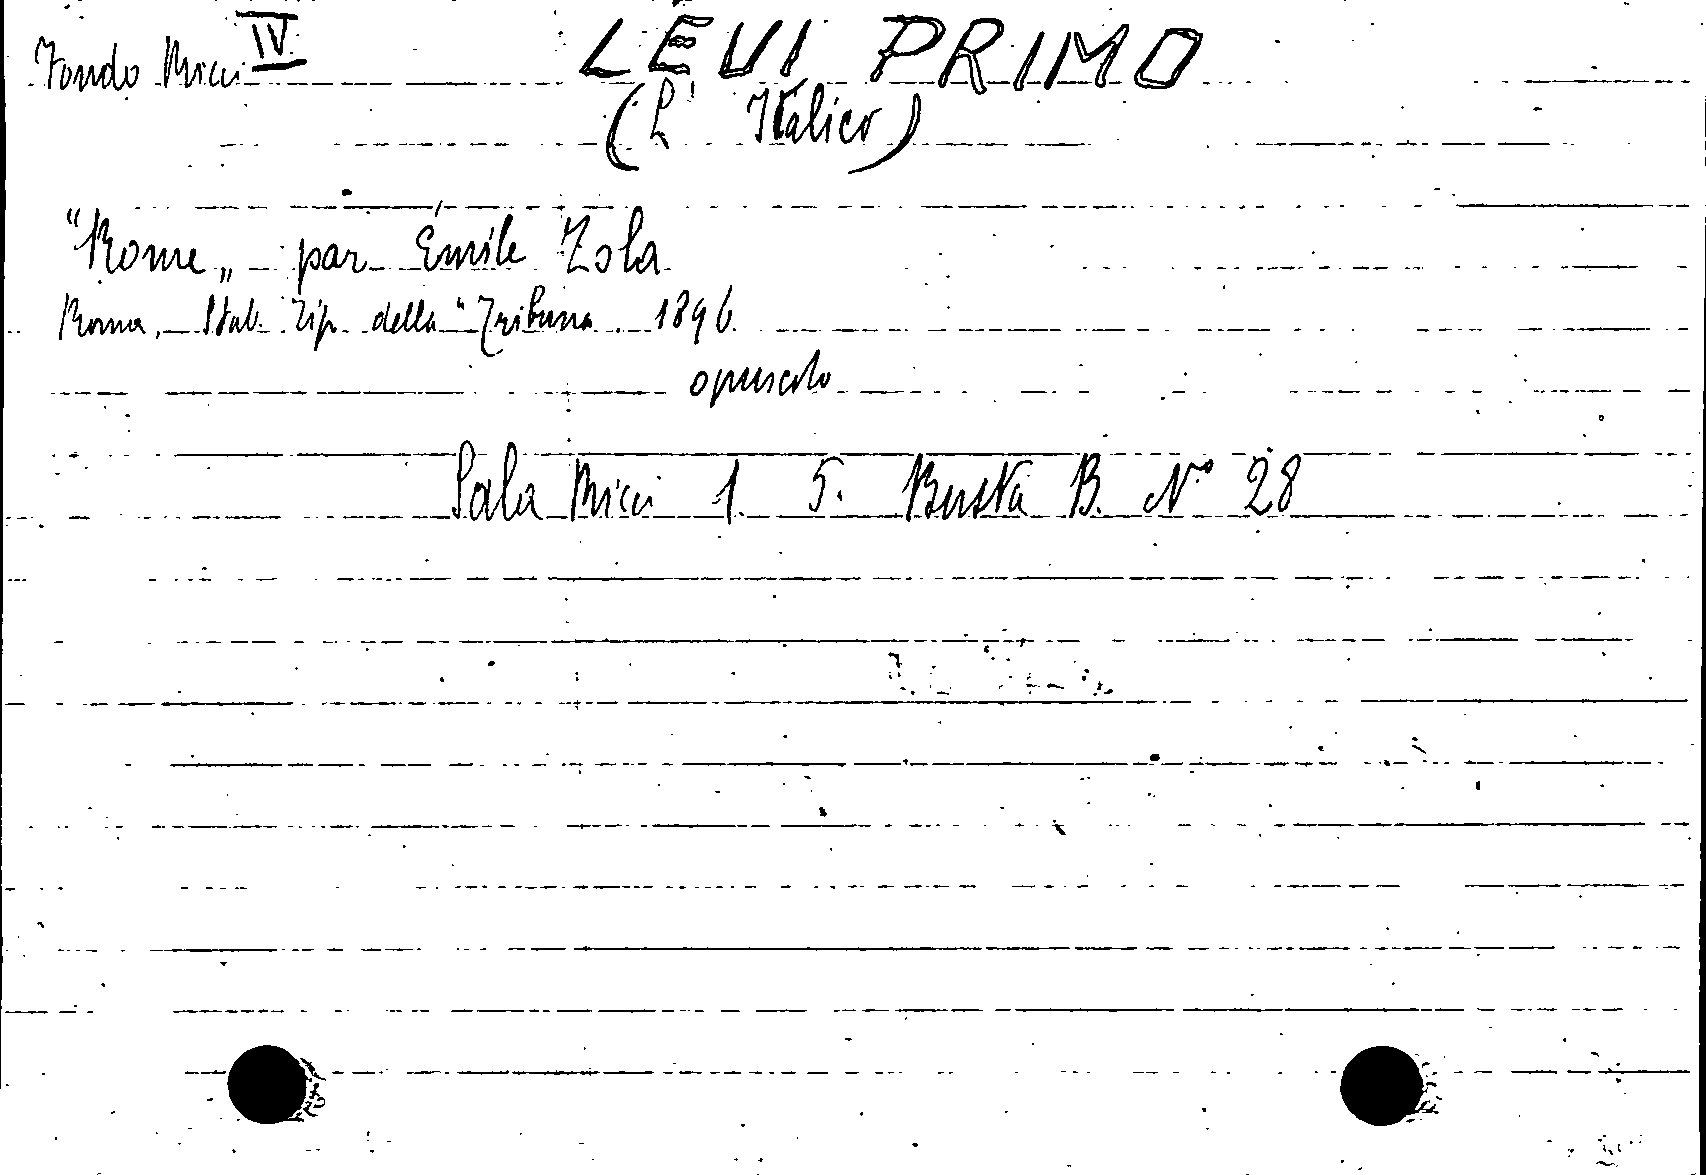 Fondo Ricci IV
LEVI PRIMO
(L' Italico)
"Rome„ par Émile Zola
Roma. Stab. Tip. della "Tribuna. 1896.
opuscolo
Sala Ricci 1. 5. Busta B. N° 28